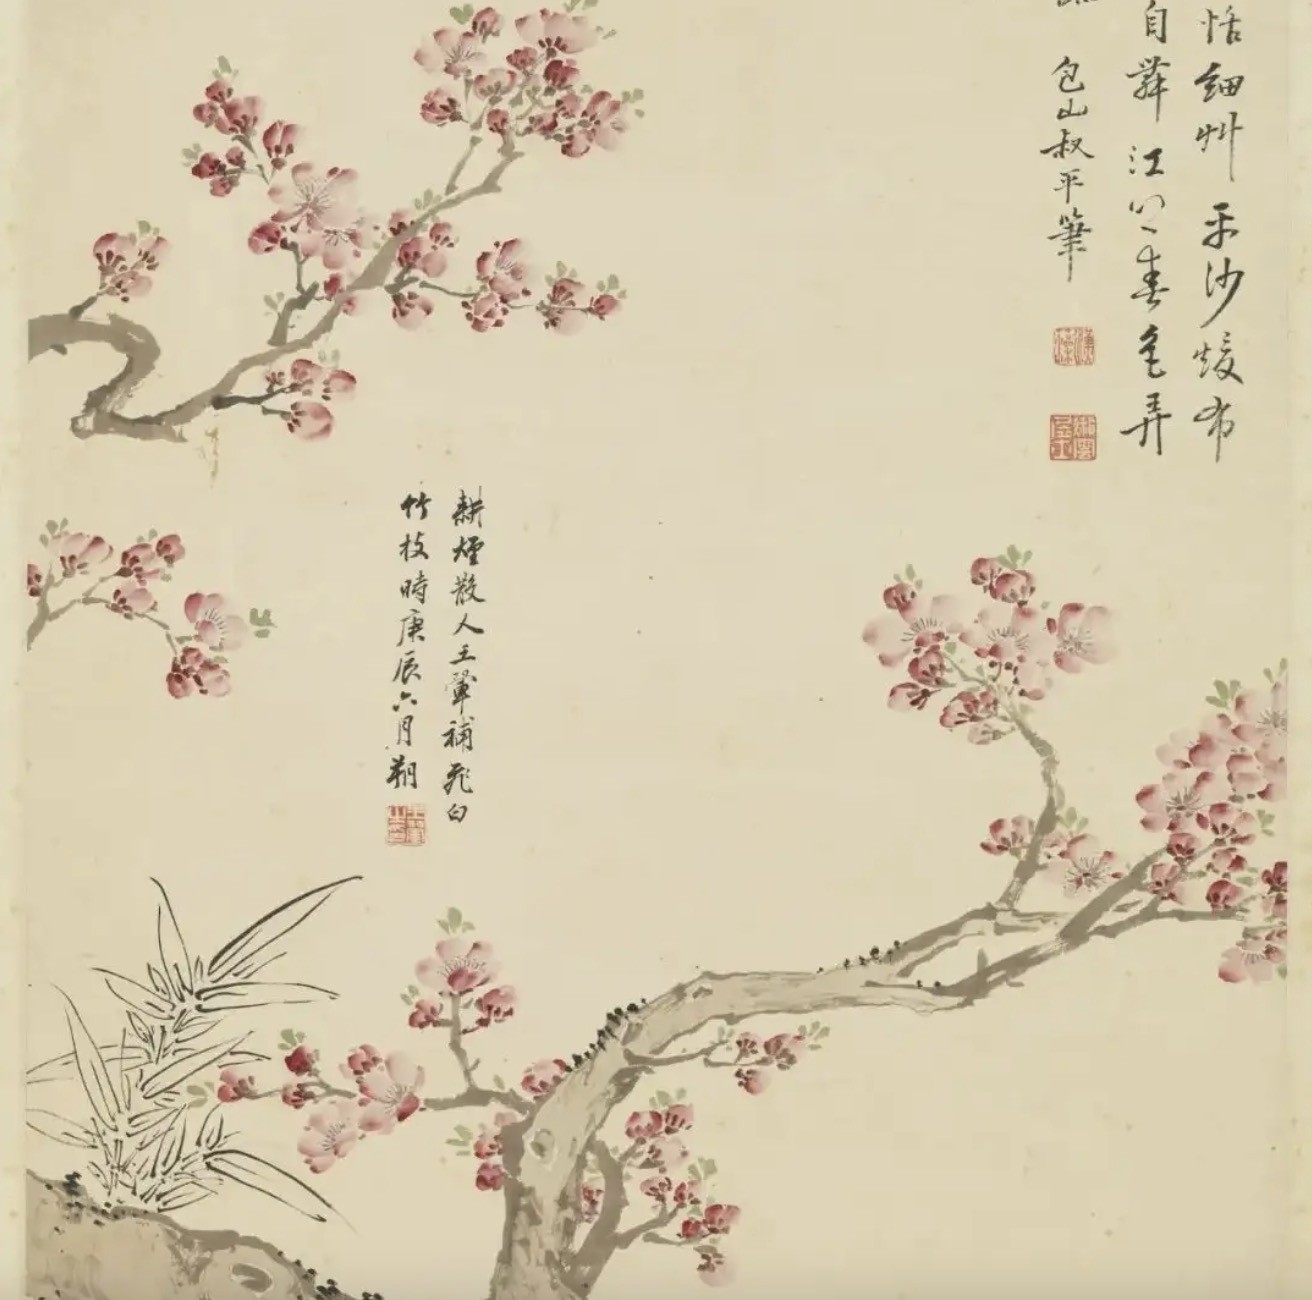 恬細艸平沙煖布
自舞江上春色弄
包山叔平筆
耕煙散人王翬補飛白
竹枝時庚辰六月朔